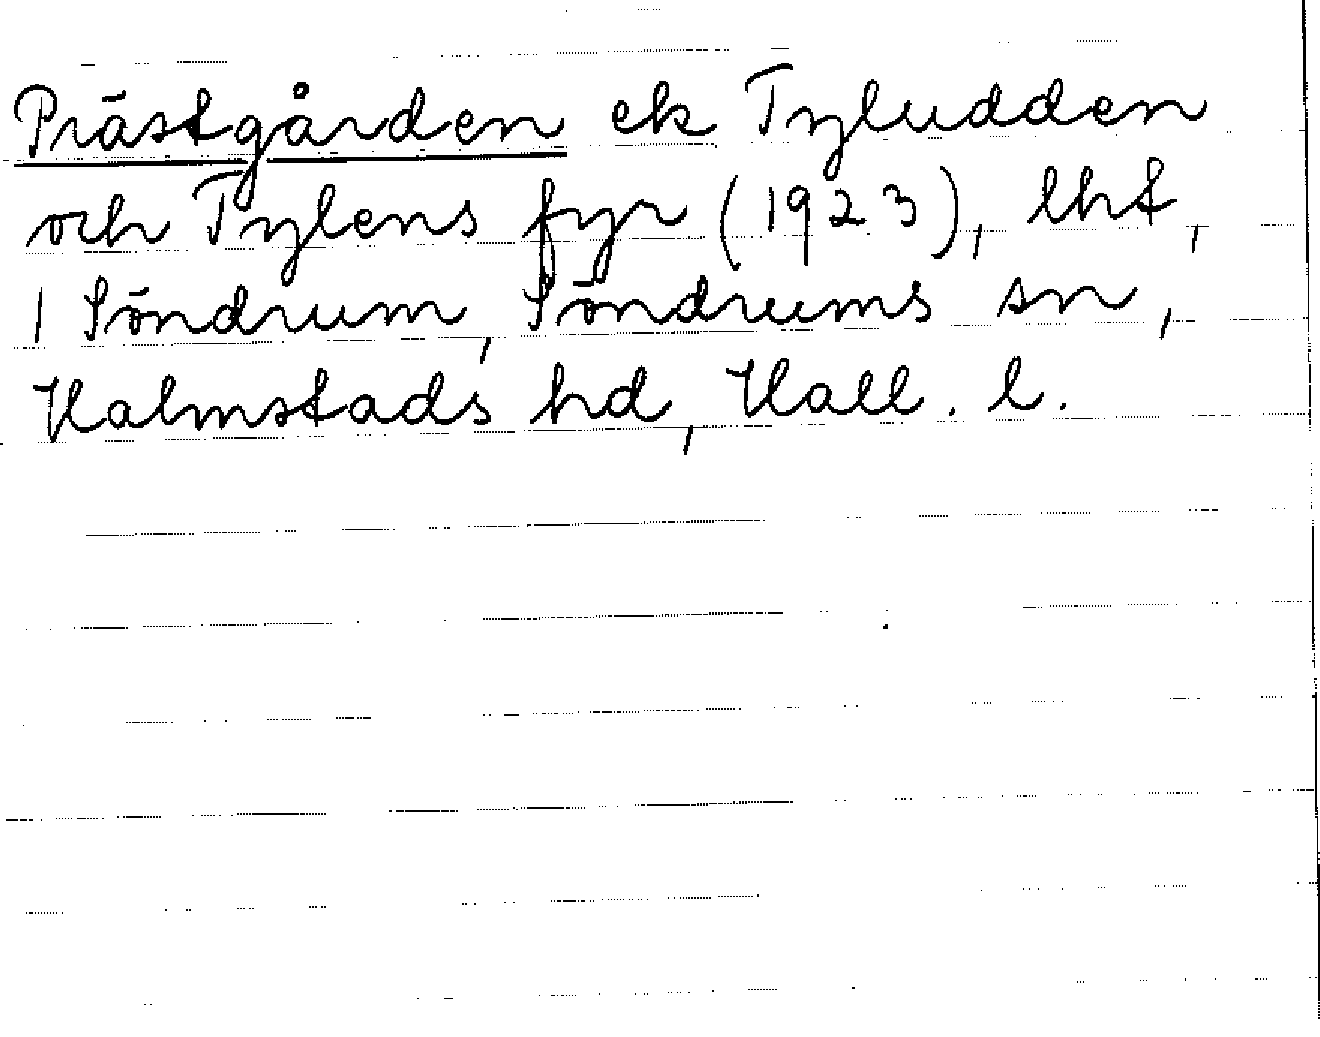 Prästgården ek Tyludden
och Tylens fyr (1923), lht,
1 Söndrum, Söndrums sn,
Halmstads hd, Hall. l.